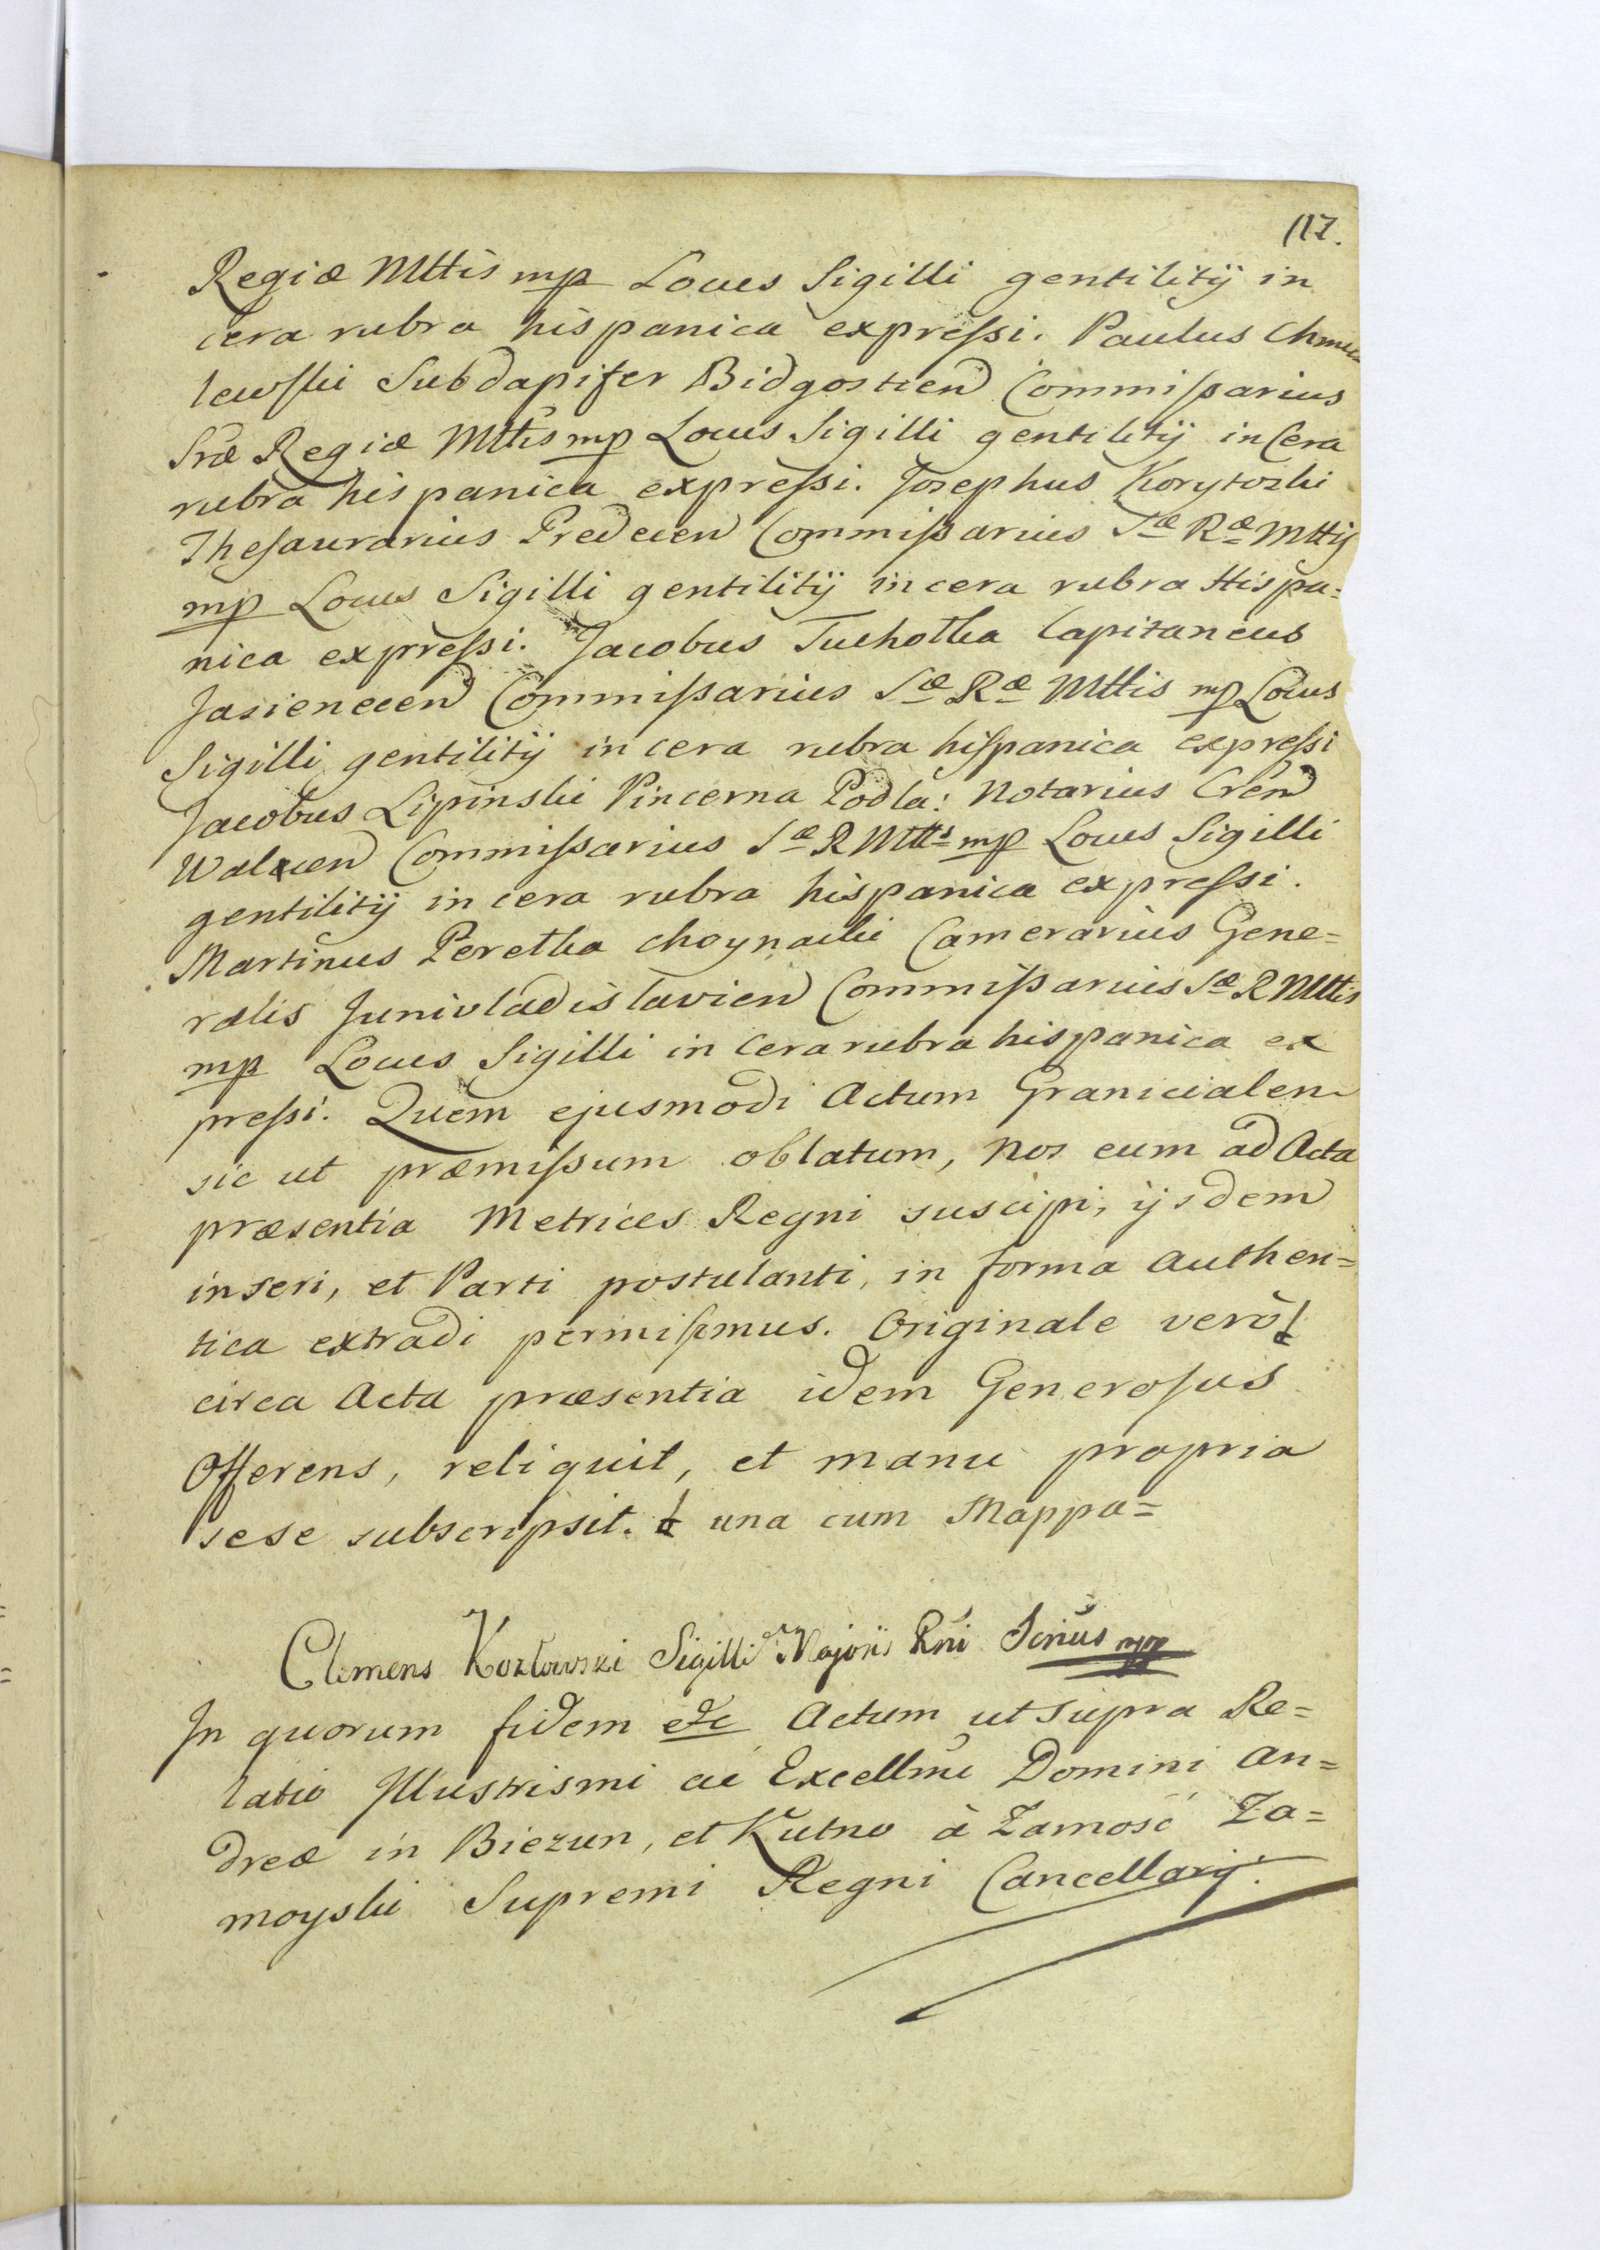 117.
Regiæ Mttis mp Locus Sigilli gentilitij in
cera rubra hispanica expreſsi. Paulus Chmie
lewſki Subdapifer Bidgostien Commiſsarius
Sræ Regiæ Mttis mp Locus Sigilli gentilitij in Cera
rubra hispanica expreſsi. Josephus Korytoski
Theſaurarius Predecen Commiſsarius Sæ Ræ Mttis
mp Locus Sigilli gentilitij in cera rubra Hispa-
nica expreſsi. Jacobus Tucholka Capitaneus
Jasienecen Commiſsarius Sæ Ræ Mttis mp Locus
Sigilli gentilitij in cera rubra hiſpanica expreſsi
Jacobus Lipinski Pincerna Podla: Notarius Cren
Walcen Commiſsarius Sæ R Mttis mp Locus Sigilli
gentilitij in cera rubra hispanica expreſsi.
Martinus Peretka Choynacki Camerarius Gene=
ralis Junivladislavien Commiſsarius Sæ R Mttis
mp Locus Sigilli in Cera rubra hispanica ex
preſsi. Quem ejusmodi Actum Granicialem
sic ut præmiſsum oblatum, Nos eum ad Acta
præsentia Metrices Regni suscipi, ijsdem
inseri, et Parti postulanti, in forma Authen=
tica extradi permiſsimus. Originale verò
circa Acta præsentia idem Generoſus
Offerens, reliquit, et manu propria
sese subscripsit. una cum Mappa=
Clemens Kozłowski Sigilli Majoris Rni Scrius mp
In quorum fidem etc Actum ut supra Re=
latio Jllustrismi ac Excellmi Domini An=
dreæ in Biezun, et Kutno à Zamość Za=
moyski Supremi Regni Cancellarij.